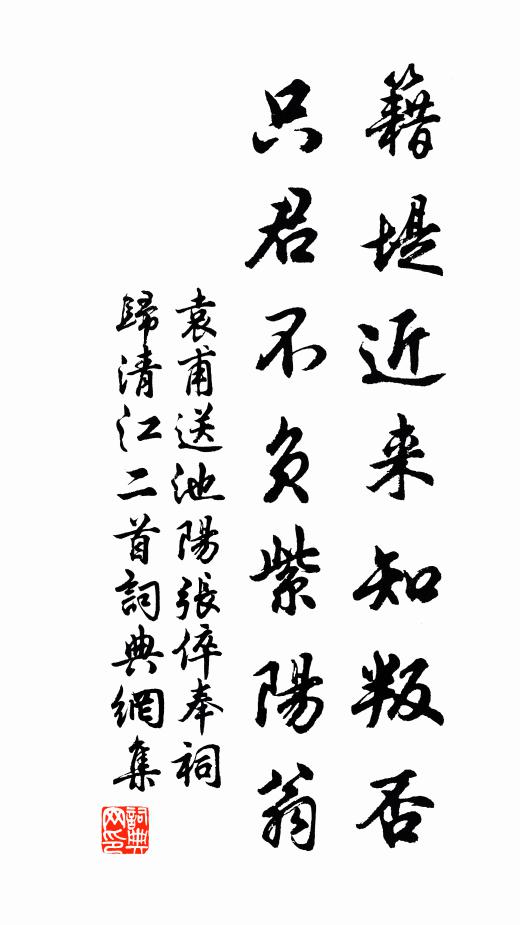 籍堤近来知叛否
只君不负紫陽翁
袁甫送池陽張倅奉祠
歸清江二首詞典網集
詞典
网印